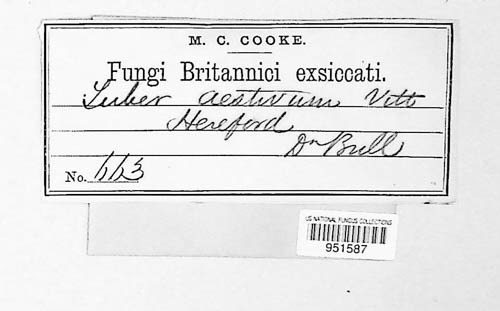 M. C. COOKE.
Fungi Britannici exsiccati.
Tuber aestivum Vitt
Hereford
Dr Bull
No. 663
US NATIONAL FUNGUS COLLECTIONS
951587